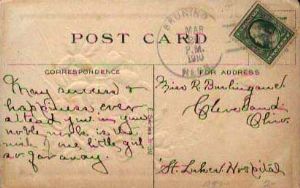 POST CARD
MAR
P.M.
1910
CORRESPONDENCE
FOR ADDRESS
May success &
happiness ever
attend you in your
noble work is the
wish of one little girl
so far away.
Miss R Burlingame
Cleveland
Ohio.
St. Lukes Hospital